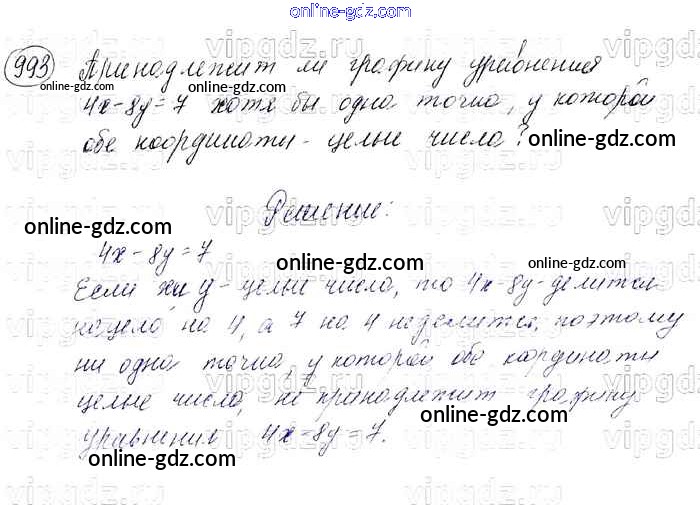 online-gdz.com
993 Принадлежит ли графику уравнения
4x-8y=7 хотя бы одна точка, у которой
обе координаты - целые числа?
Решение:
4x-8y=7
Если x и y - целые числа, то 4x-8y-делится
нацело на 4, а 7 на 4 не делится, поэтому
ни одна точка, у которой обе координаты
целые числа, не принадлежит графику
уравнения 4x-8y=7.
online-gdz.com
online-gdz.com
online-gdz.com
online-gdz.com
online-gdz.com
online-gdz.com
online-gdz.com
online-gdz.com